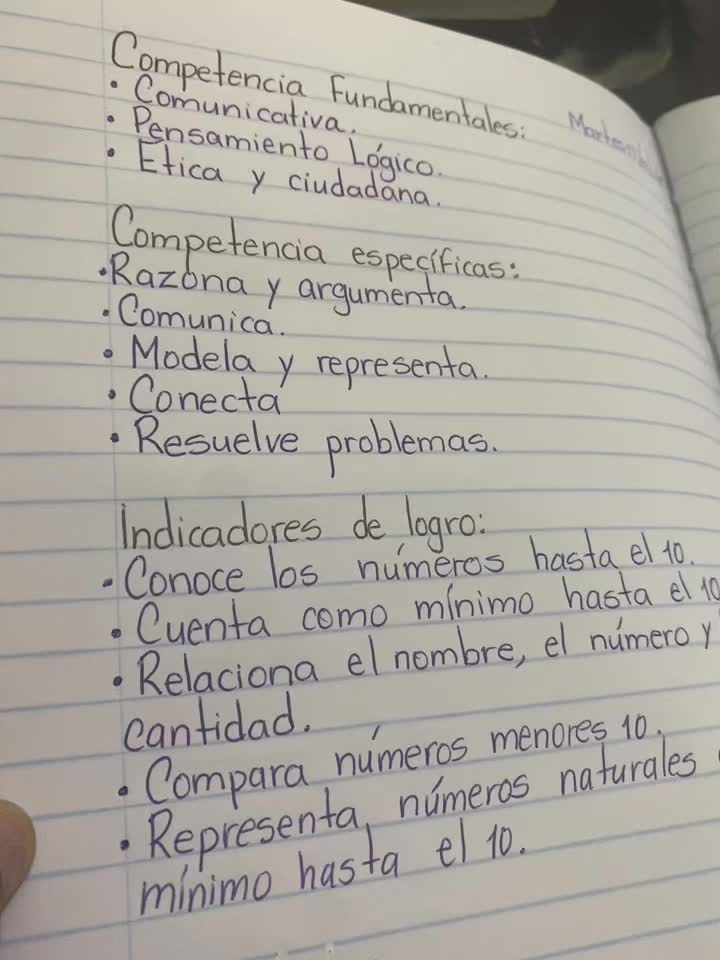 Competencia Fundamentales:
• Comunicativa.
• Pensamiento Lógico.
• Etica y ciudadana.
Competencia específicas:
• Razona y argumenta.
• Comunica.
• Modela y representa.
• Conecta
• Resuelve problemas.
Indicadores de logro:
• Conoce los números hasta el 10.
• Cuenta como mínimo hasta el 10
• Relaciona el nombre, el número y
cantidad.
• Compara números menores 10.
• Representa números naturales
mínimo hasta el 10.